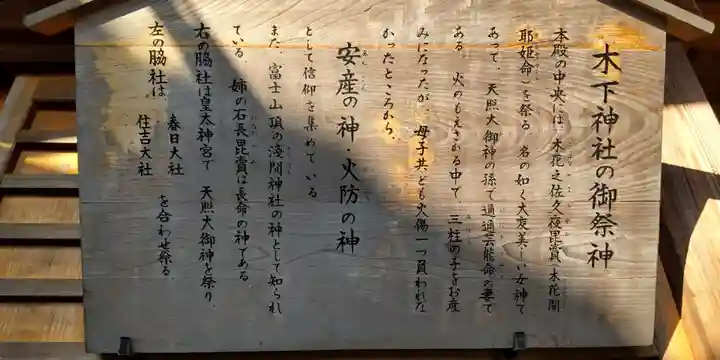 木下神社の御祭神
本殿の中央には、木花之佐久夜毘賣(木花開
耶姫命)を祭る。名の如く大変美しい女神で
あって、天照大御神の孫で通通芸能命の妻で
ある。火のもえさかる中で、三柱の子をお産
みになったが、母子共ども火傷一つ負われな
かったところから、
安産の神・火防の神
として信仰を集めている
また、富士山頂の浅間神社の神として知られ
ている。姉の石長毘賣は長命の神である
右の脇社は皇太神宮で 天照大御神を祭り、
左の脇社は、春日大社 住吉大社 を合わせ祭る。